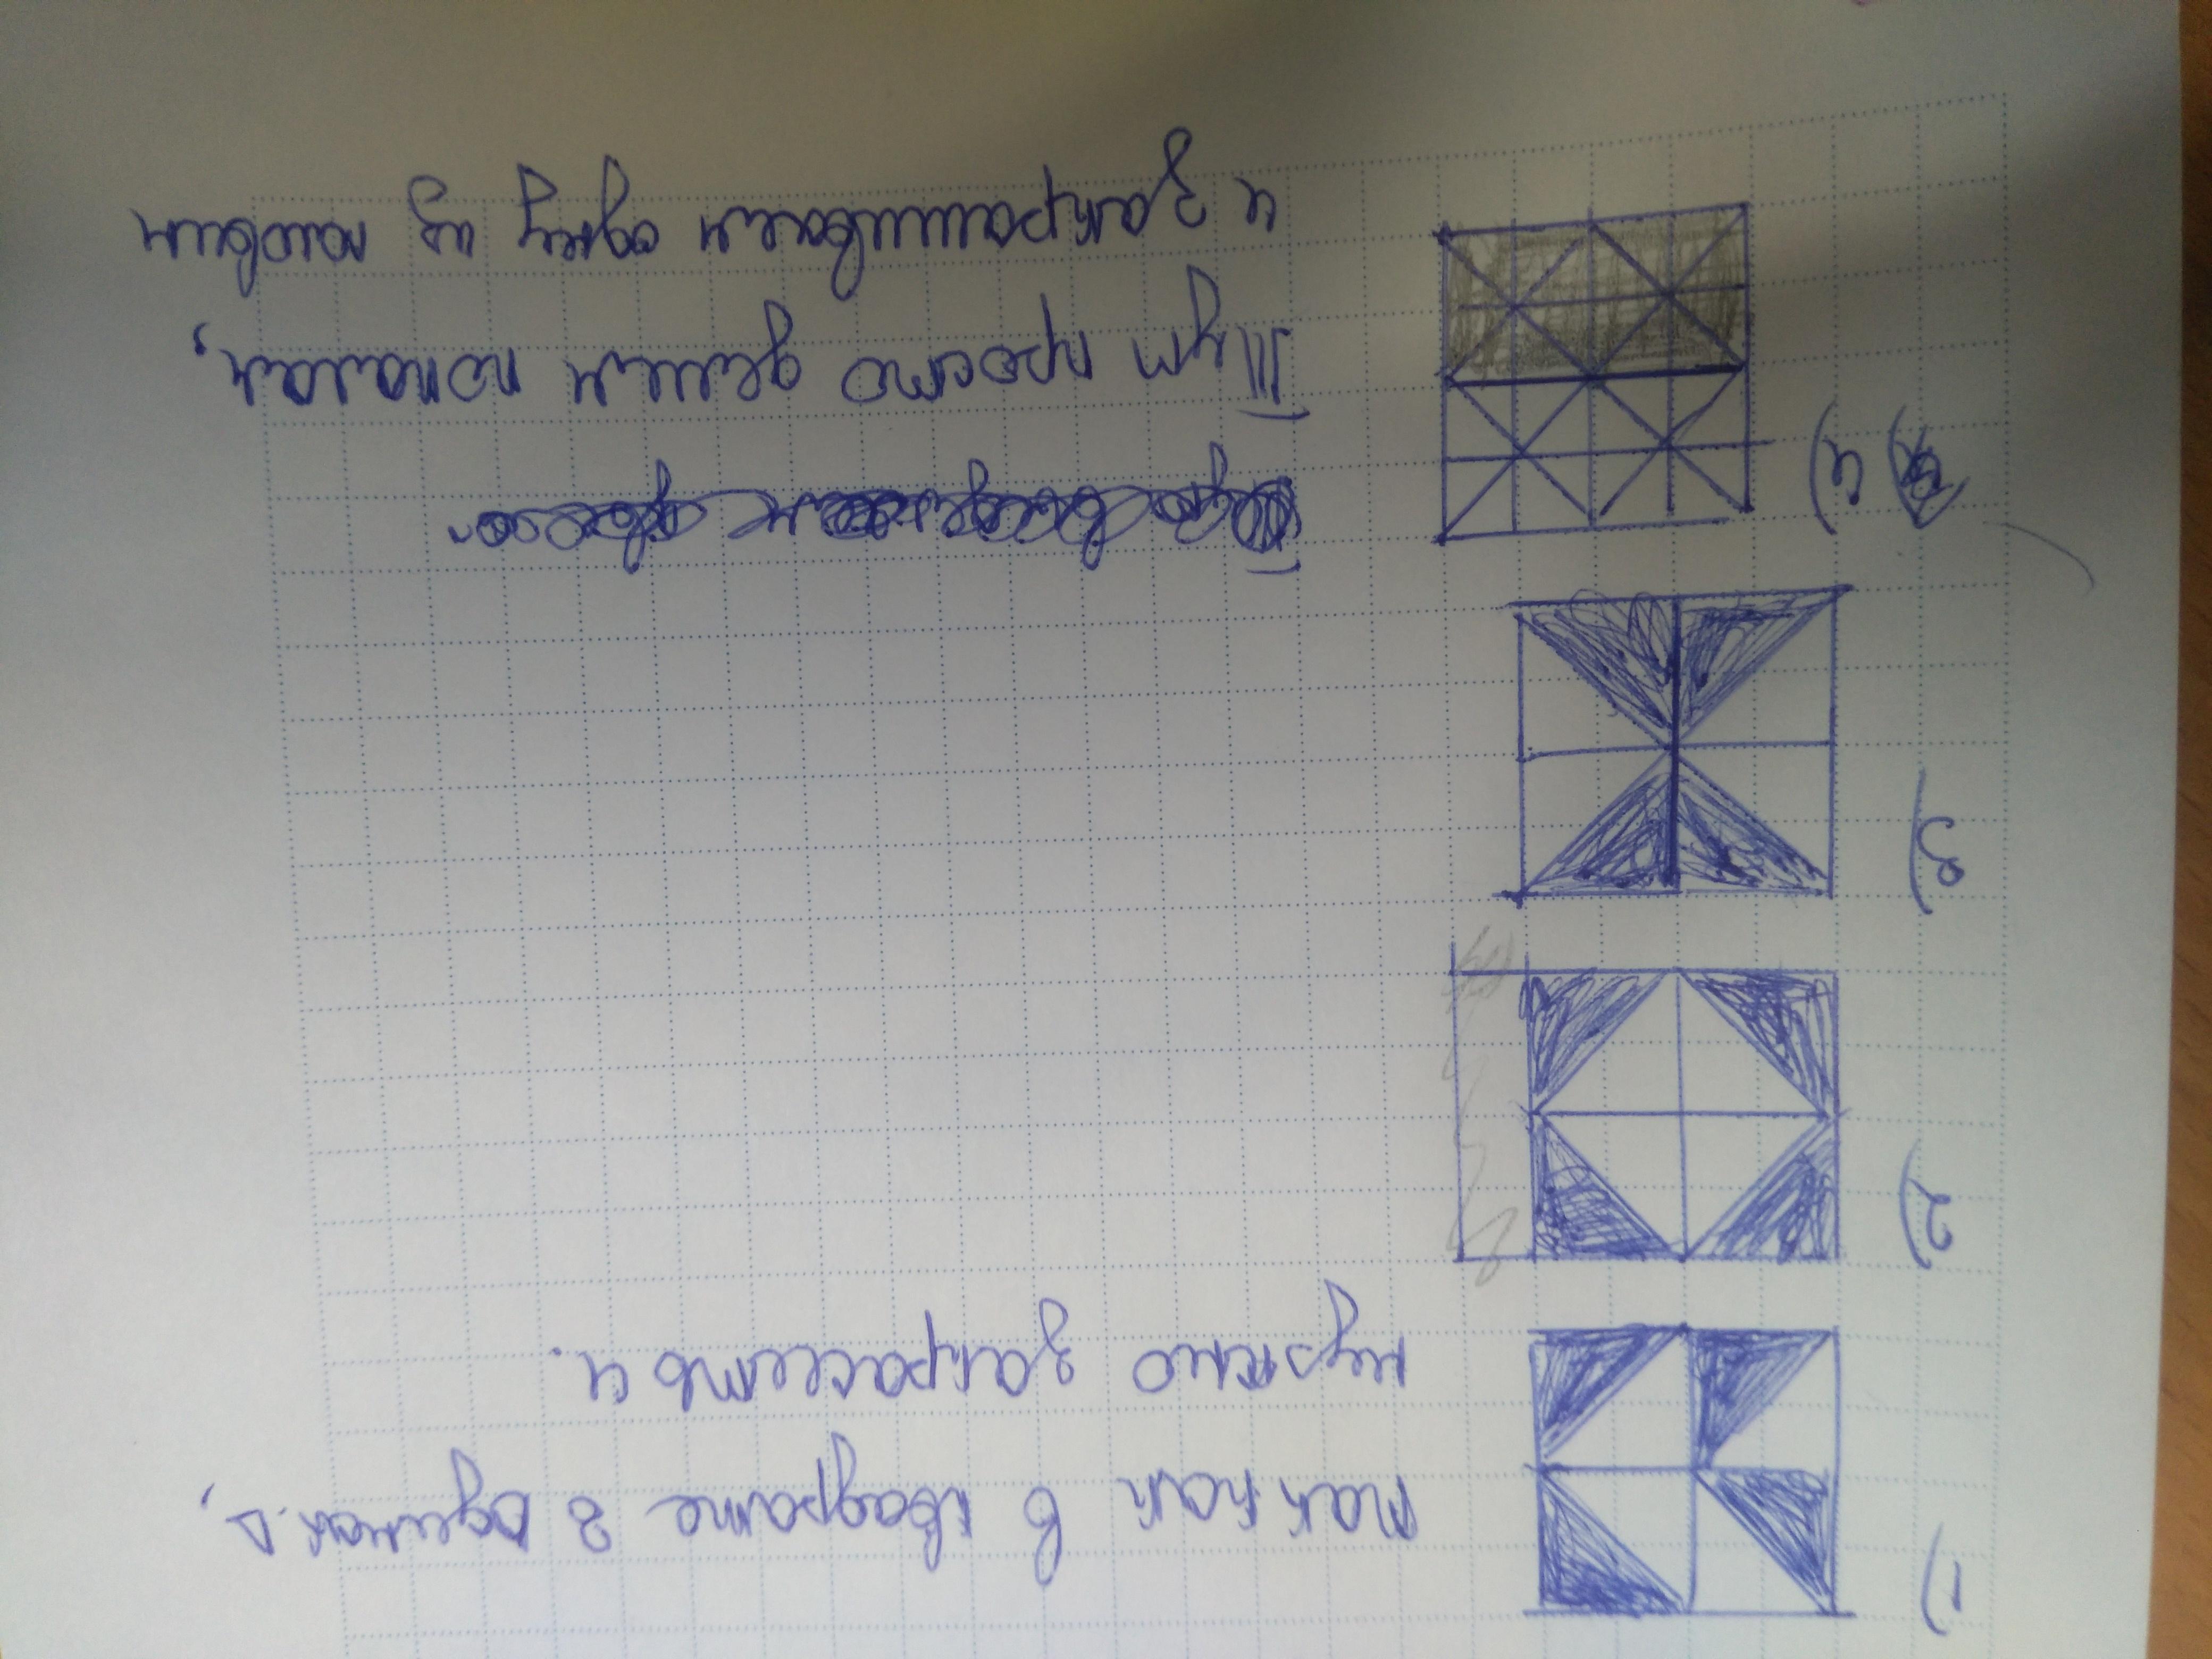 1) так как в квадрате 8 одинак. Δ,
нужно закрасить 4.
2)
3)
4)
Тут просто делим попалам,
и закрашиваем одну из половин